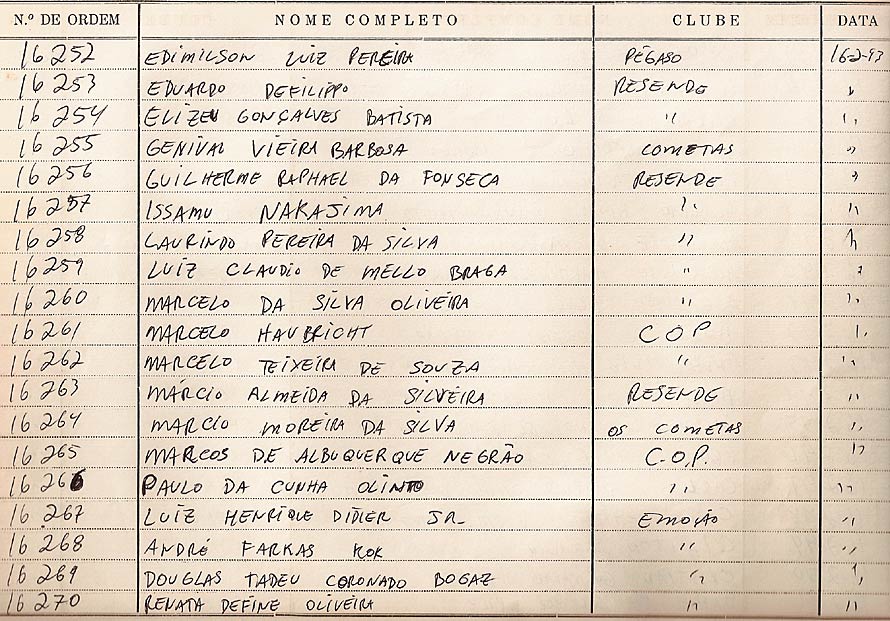 N.º DE ORDEM NOME COMPLETO CLUBE DATA
16252 EDIMILSON LUIZ PEREIRA PÉGASO 16-2-93
16253 EDUARDO DEFILIPPO RESENDE "
16254 ELIZEU GONÇALVES BATISTA " "
16255 GENIVAL VIEIRA BARBOSA COMETAS "
16256 GUILHERME RAPHAEL DA FONSECA RESENDE "
16257 ISSAMU NAKAJIMA " "
16258 LAURINDO PEREIRA DA SILVA " "
16259 LUIZ CLAUDIO DE MELLO BRAGA " "
16260 MARCELO DA SILVA OLIVEIRA " "
16261 MARCELO HAUBRICHT COP "
16262 MARCELO TEIXEIRA DE SOUZA " "
16263 MÁRCIO ALMEIDA DA SILVEIRA RESENDE "
16264 MARCIO MOREIRA DA SILVA OS COMETAS "
16265 MARCOS DE ALBUQUERQUE NEGRÃO C.O.P. "
16266 PAULO DA CUNHA OLINTO " "
16267 LUIZ HENRIQUE DIDIER JR. EMOÇÃO "
16268 ANDRÉ FARKAS KOK " "
16269 DOUGLAS TADEU CORONADO BOGAZ " "
16270 RENATA DEFINE OLIVEIRA " "